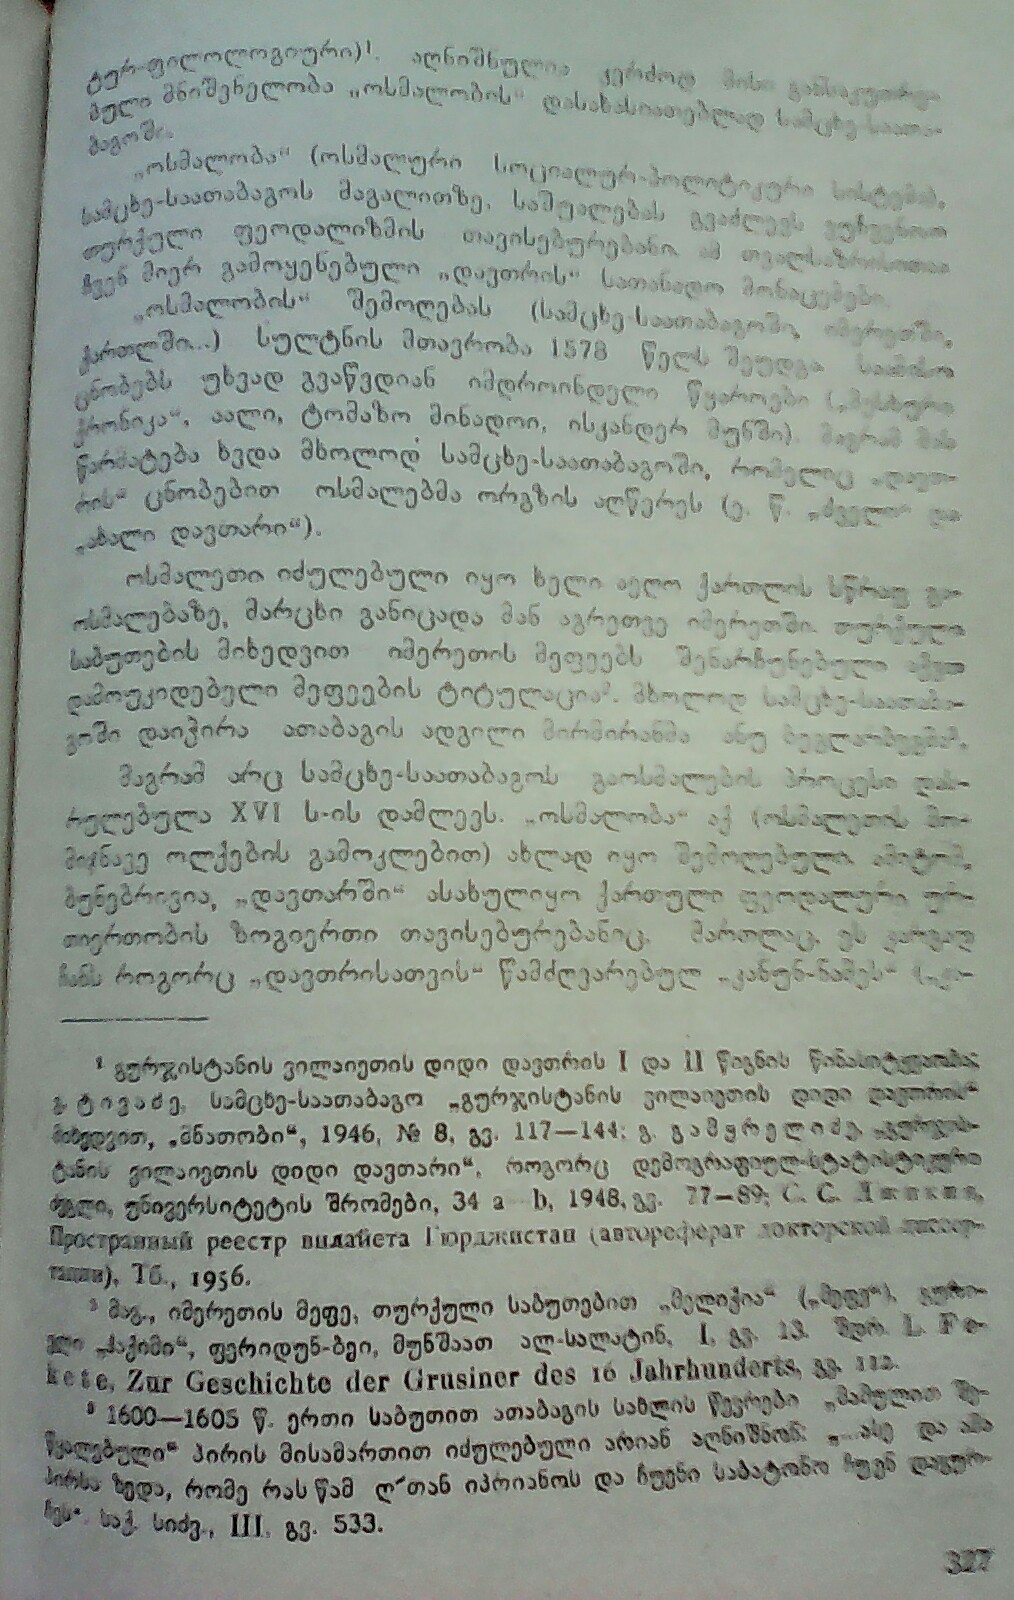 ტურ-ფილოლოგიური)¹. აღნიშნულია კერძოდ მისი განსაკუთრე-
ბული მნიშვნელობა „ოსმალობის“ დასახასიათებლად სამცხე-საათა-
ბაგოში.
„ოსმალობა“ (ოსმალური სოციალურ-პოლიტიკური სისტემა),
სამცხე-საათაბაგოს მაგალითზე, საშუალებას გვაძლევს ვუჩვენოთ
თურქული ფეოდალიზმის თავისებურებანი. ამ თვალსაზრისითაა
ჩვენ მიერ გამოყენებული „დავთრის“ სათანადო მონაცემები.
„ოსმალობის“ შემოღებას (სამცხე-საათაბაგოში, იმერეთში,
ქართლში...) სულტნის მთავრობა 1578 წელს შეუდგა. სათანადო
ცნობებს უხვად გვაწვდიან იმდროინდელი წყაროები („მესხური
ქრონიკა“, აალი, ტომაზო მინადოი, ისკანდერ მუნში). მაგრამ მას
წარმატება ხვდა მხოლოდ სამცხე-საათაბაგოში, რომელიც „დავთ-
რის“ ცნობებით ოსმალებმა ორგზის აღწერეს (ე. წ. „ძველი“ და
„ახალი დავთარი“).
ოსმალეთი იძულებული იყო ხელი აეღო ქართლის სწრაფ გა-
ოსმალებაზე, მარცხი განიცადა მან აგრეთვე იმერეთში. თურქული
საბუთების მიხედვით იმერეთის მეფეებს შენარჩუნებული აქვთ
დამოუკიდებელი მეფეების ტიტულაცია². მხოლოდ სამცხე-საათაბა-
გოში დაიჭირა ათაბაგის ადგილი მირმირანმა ანუ ბეგლარბეგმა³.
მაგრამ არც სამცხე-საათაბაგოს გაოსმალების პროცესი დას-
რულებულა XVI ს-ის დამლევს. „ოსმალობა“ აქ (ოსმალეთის მო-
მიჯნავე ოლქების გამოკლებით) ახლად იყო შემოღებული. ამიტომ,
ბუნებრივია, „დავთარში“ ასახულიყო ქართული ფეოდალური ურ-
თიერთობის ზოგიერთი თავისებურებანიც. მართლაც, ეს კარგად
ჩანს როგორც „დავთრისათვის“ წამძღვარებულ „კანუნ-ნამეს“ („კა-
¹ გურჯისტანის ვილაიეთის დიდი დავთრის I და II წიგნის წინასიტყვაობა;
გ. ტივაძე, სამცხე-საათაბაგო „გურჯისტანის ვილაიეთის დიდი დავთრის“
მიხედვით, „მნათობი“, 1946, № 8, გვ. 117—144; გ. გამყრელიძე, „გურჯის-
ტანის ვილაიეთის დიდი დავთარი“, როგორც დემოგრაფიულ-სტატისტიკური
ძეგლი, უნივერსიტეტის შრომები, 34 a b, 1948, გვ. 77—89; С. С. Джикия,
Пространный реестр вилайета Гюрджистан (автореферат докторской диссер-
тации), Тб., 1956.
² მაგ., იმერეთის მეფე, თურქული საბუთებით „მელიქია“ („მეფე“), გური-
ელი „ჰაქიმი“, ფერიდუნ-ბეი, მუნშაათ ალ-სალატინ, I, გვ. 13. შდრ. L. Fe-
kete, Zur Geschichte der Grusiner des 16 Jahrhunderts, გვ. 112.
³ 1600—1605 წ. ერთი საბუთით ათაბაგის სახლის წევრები „მამულით შე-
წყალებული“ პირის მისამართით იძულებული არიან აღნიშნონ: „...ასე და ამა
პირსა ზედა, რომე რას წამ ღ˜თან იპრიანოს და ჩუენი საბატონო ჩუენ დაგურ-
ჩეს“. საქ. სიძვ., III, გვ. 533.
327